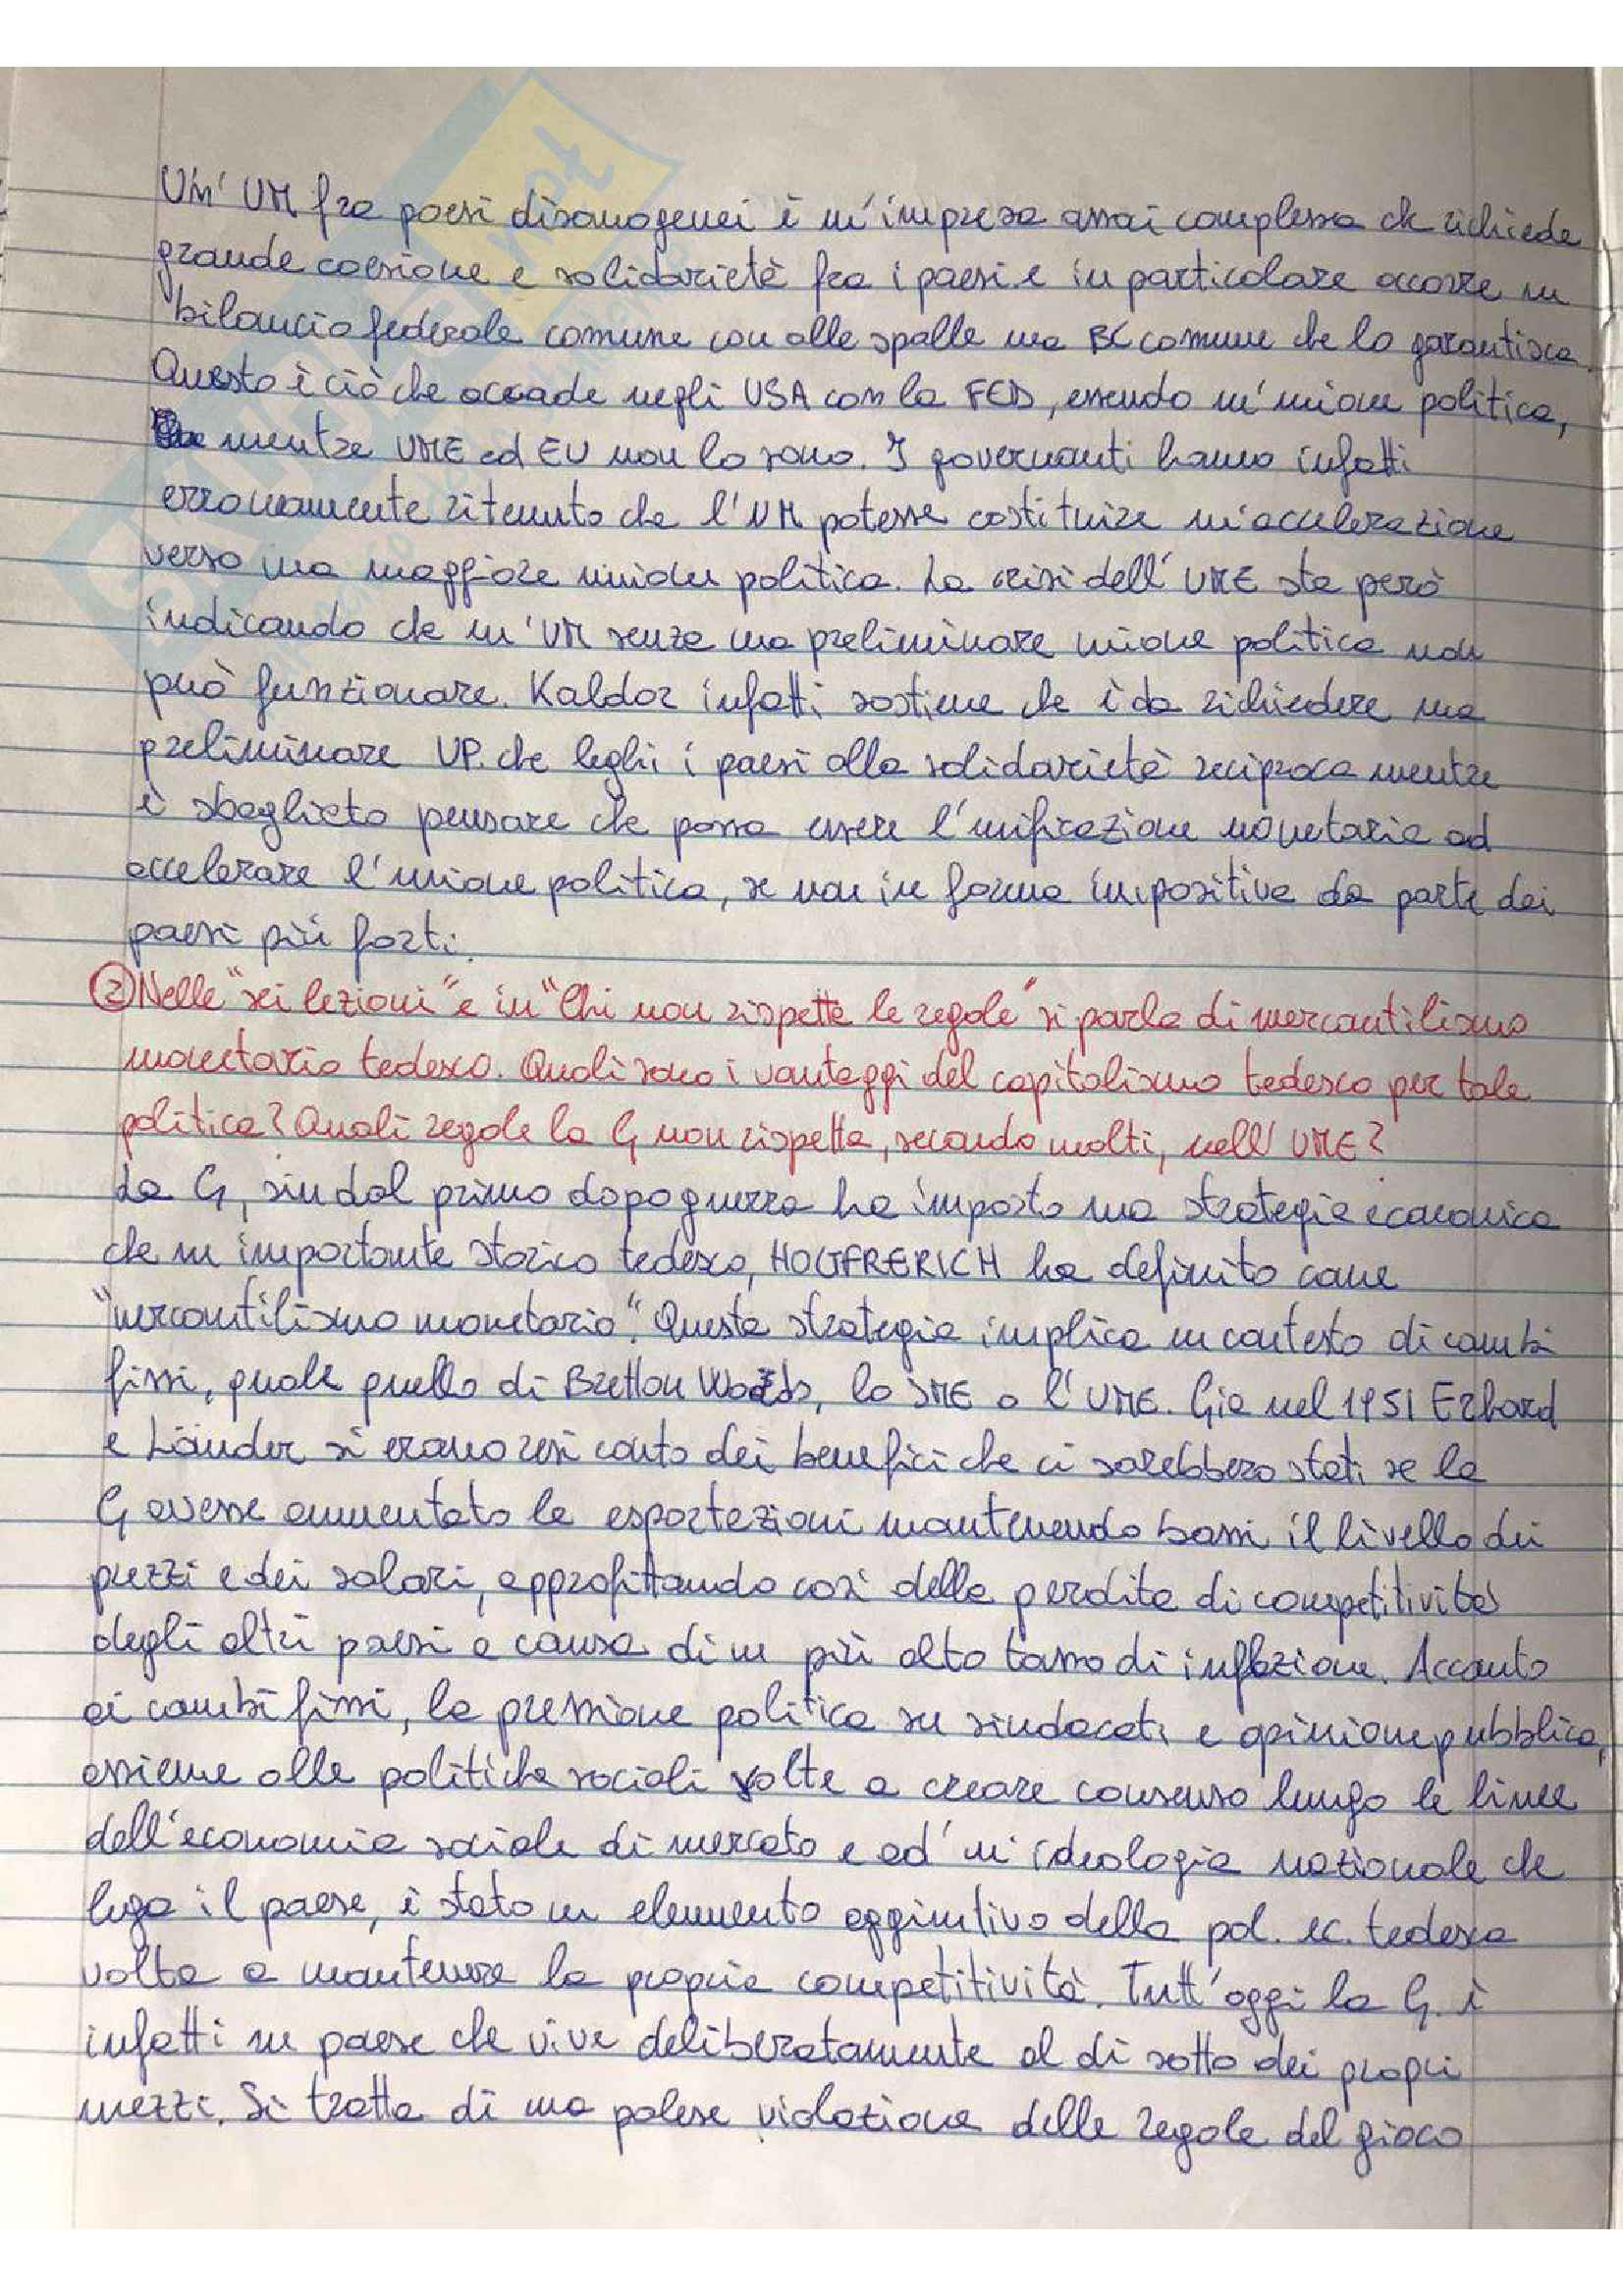 Un' UM fra paesi disomogenei è un'impresa assai complessa che richiede
grande coesione e solidarietà fra i paesi e in particolare occorre un
bilancio federale comune con alle spalle una BC comune che lo garantisca.
Questo è ciò che accade negli USA con la FED, essendo un'unione politica,
mentre UME ed EU non lo sono. I governanti hanno infatti
erroneamente ritenuto che l'UM potesse costituire un'accelerazione
verso una maggiore unione politica. La crisi dell'UME sta però
indicando che un'UM senza una preliminare unione politica non
può funzionare. Kaldor infatti sostiene che è da richiedere una
preliminare UP. che leghi i paesi alla solidarietà reciproca mentre
è sbagliato pensare che possa essere l'unificazione monetaria ad
accelerare l'unione politica, se non in forma impositiva da parte dei
paesi più forti.
② Nelle "sei lezioni" e in "Chi non rispetta le regole" si parla di mercantilismo
monetario tedesco. Quali sono i vantaggi del capitalismo tedesco per tale
politica? Quali regole la G non rispetta, secondo molti, nell'UME?
La G, sin dal primo dopoguerra ha imposto una strategia economica
che un importante storico tedesco, HOLTFRERICH ha definito come
"mercantilismo monetario". Questa strategia implica un contesto di cambi
fissi, quale quello di Bretton Woods, lo SME o l'UME. Già nel 1951 Erhard
e Länder si erano resi conto dei benefici che ci sarebbero stati se la
G avesse aumentato le esportazioni mantenendo bassi il livello dei
prezzi e dei salari, approfittando così della perdita di competitività
degli altri paesi a causa di un più alto tasso di inflazione. Accanto
ai cambi fissi, la pressione politica su sindacati e opinione pubblica,
assieme alle politiche sociali volte a creare consenso lungo le linee
dell'economia sociale di mercato e ad un'ideologia nazionale che
lega il paese, è stato un elemento aggiuntivo della pol. ec. tedesca
volta a mantenere la propria competitività. Tutt'oggi la G. è
infatti un paese che vive deliberatamente al di sotto dei propri
mezzi. Si tratta di una palese violazione delle regole del gioco